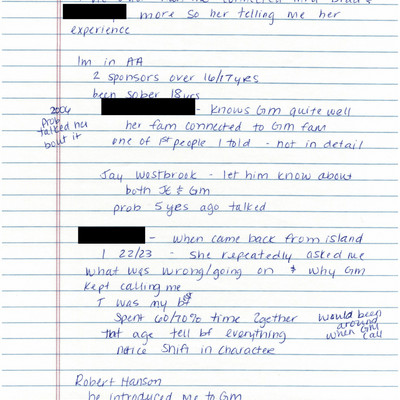 more so her telling me her
experience
Im in AA
2 sponsors over 16/17yrs
been sober 18yrs
2004
prob
talked
bout it
- knows Gm quite well
her fam connected to Gm fam
one of 1st people I told - not in detail
Jay Westbrook - let him know about
both JE & Gm
prob 5yes ago talked
- when came back from island
I 22/23 - she repeatedly asked me
what was wrong/going on & why Gm
kept calling me
T was my bf
spent 60/70% time 2gether
that age tell bf everything
notice shift in character
would been
around
when Gm
call
Robert Hanson
he introduced me to Gm